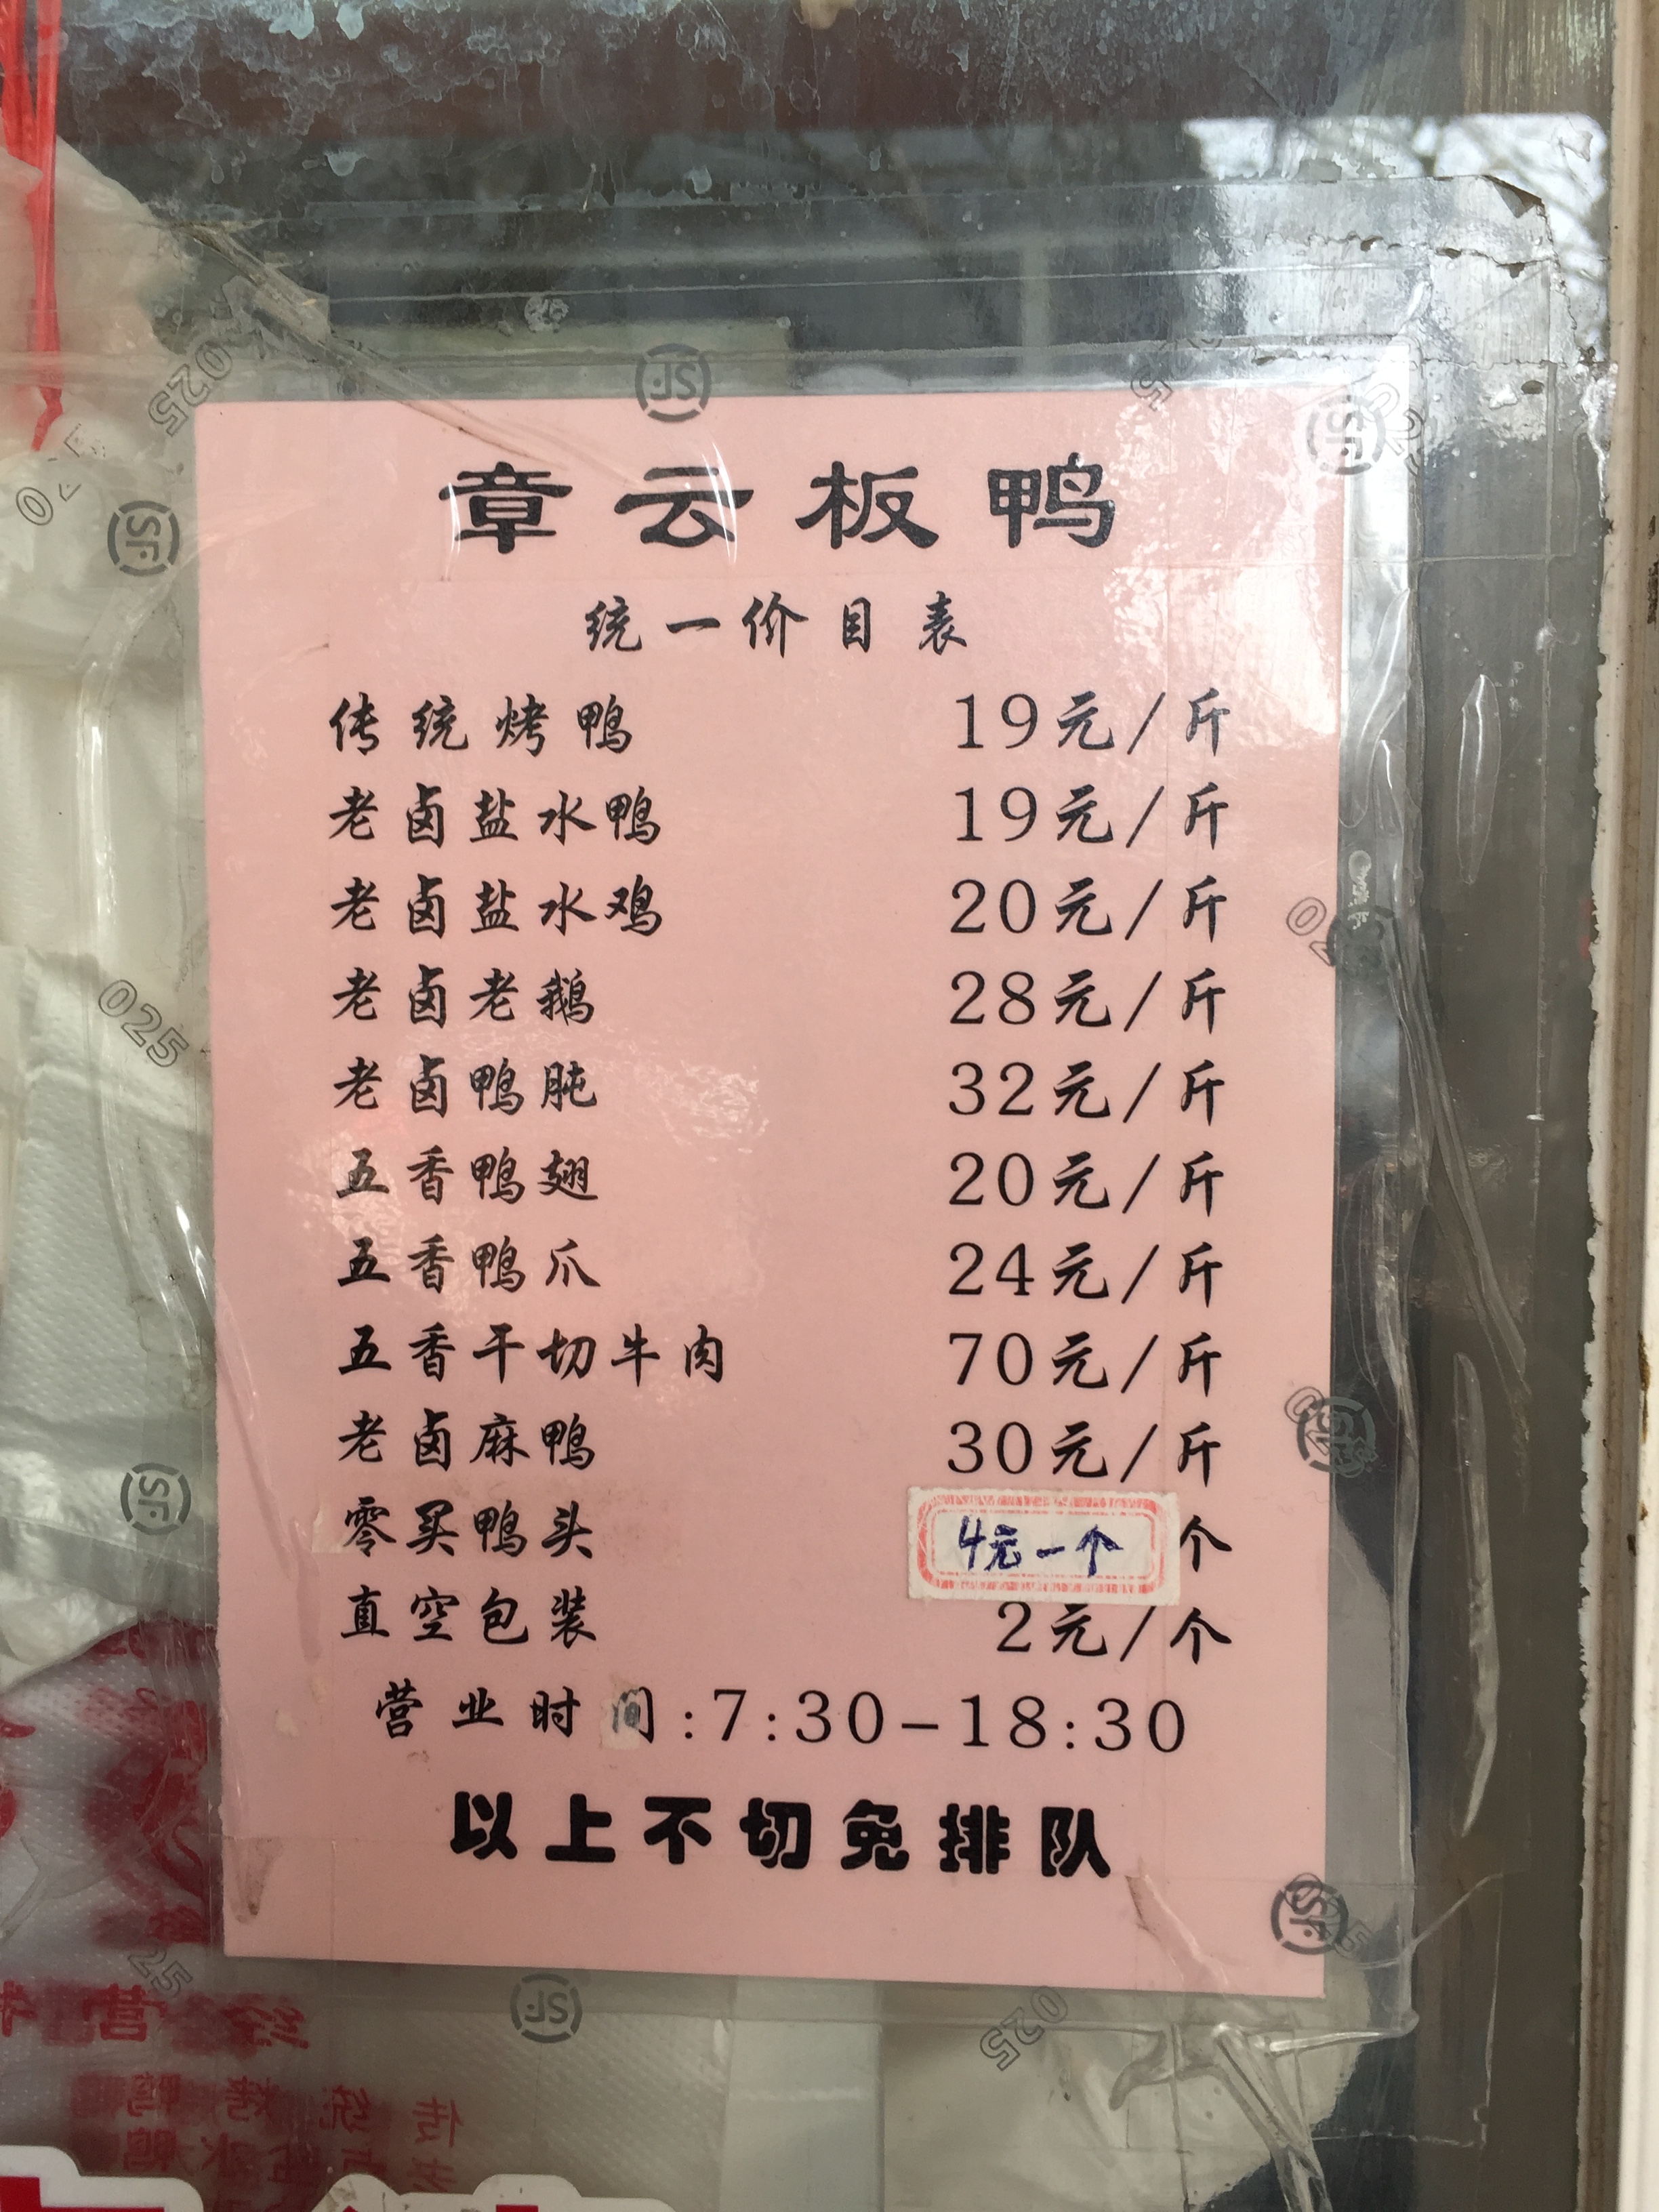 章云板鸭
统一价目表
传统烤鸭 19元/斤
老卤盐水鸭 19元/斤
老卤盐水鸡 20元/斤
老卤老鹅 28元/斤
老卤鸭肫 32元/斤
五香鸭翅 20元/斤
五香鸭爪 24元/斤
五香干切牛肉 70元/斤
老卤麻鸭 30元/斤
零买鸭头 4元一个 个
直空包装 2元/个
营业时间:7:30-18:30
以上不切免排队